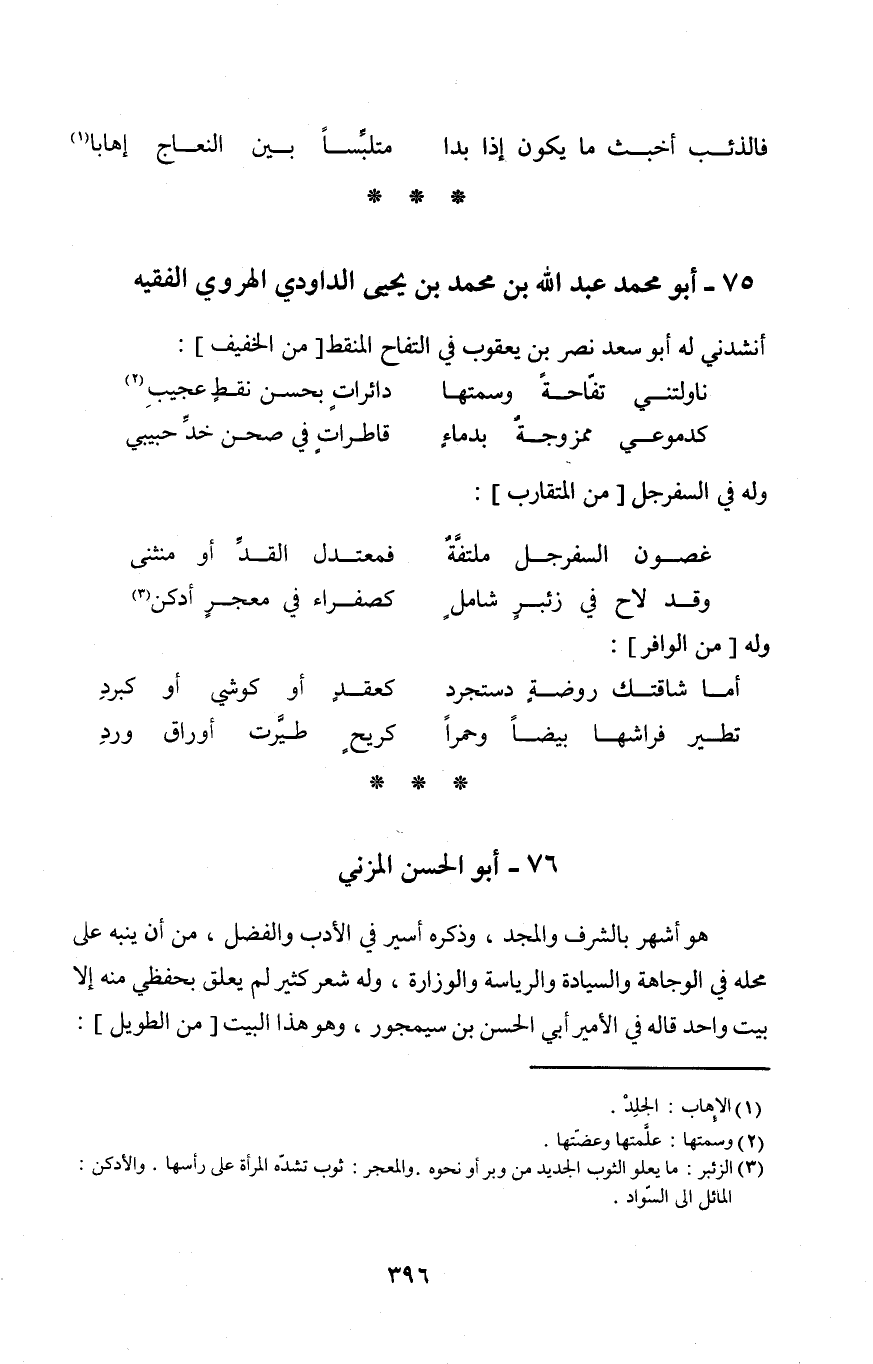 فالذئب أخبث ما يكون إذا بدا متلبِّساً بين النعاج إهابا(١)
* * *
٧٥ - أبو محمد عبد الله بن محمد بن يحيى الداودي الهروي الفقيه
أنشدني له أبو سعد نصر بن يعقوب في التفاح المنقط [ من الخفيف ] :
ناولتني تفّاحةً وسمتها دائراتٍ بحسن نقطٍ عجيبِ(٢)
كدموعي ممزوجةٌ بدماءٍ قاطراتٍ في صحن خدِّ حبيبي
وله في السفرجل [ من المتقارب ] :
غصون السفرجل ملتفَّةٌ فمعتدل القدِّ أو منثنى
وقد لاح في زئبرٍ شاملٍ كصفراء في معجرٍ أدكن(٣)
وله [ من الوافر ] :
أما شاقتك روضةٍ دستجرد كعقدٍ أو كوشي أو كبردِ
تطير فراشها بيضاً وحمراً كريحٍ طيَّرت أوراق وردِ
* * *
٧٦ - أبو الحسن المزني
هو أشهر بالشرف والمجد ، وذكره أسير في الأدب والفضل ، من أن ينبه على
محله في الوجاهة والسيادة والرياسة والوزارة ، وله شعر كثير لم يعلق بحفظي منه إلا
بيت واحد قاله في الأمير أبي الحسن بن سيمجور ، وهو هذا البيت [ من الطويل ] :
(١) الإهاب : الجلِدْ .
(٢) وسمتها : علَّمتها وعضّتها .
(٣) الزئبر : ما يعلو الثوب الجديد من وبر أو نحوه . والمعجر : ثوب تشدّه المرأة على رأسها . والأدكن :
المائل الى السّواد .
٣٩٦